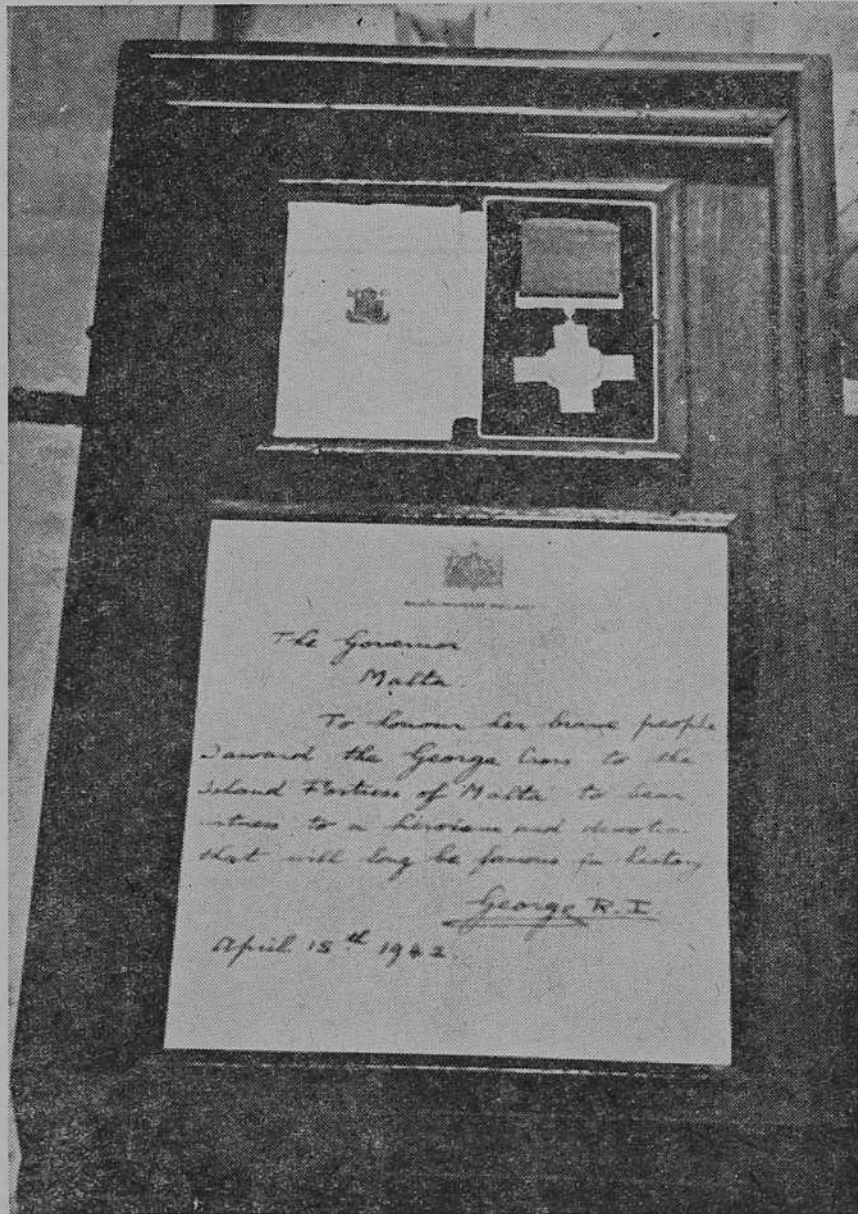 BUCKINGHAM PALACE
The Governor
Malta.
To honour her brave people
I award the George Cross to the
Island Fortress of Malta to bear
witness to a heroism and devotion
that will long be famous in history
George R.I.
April 15th 1942.